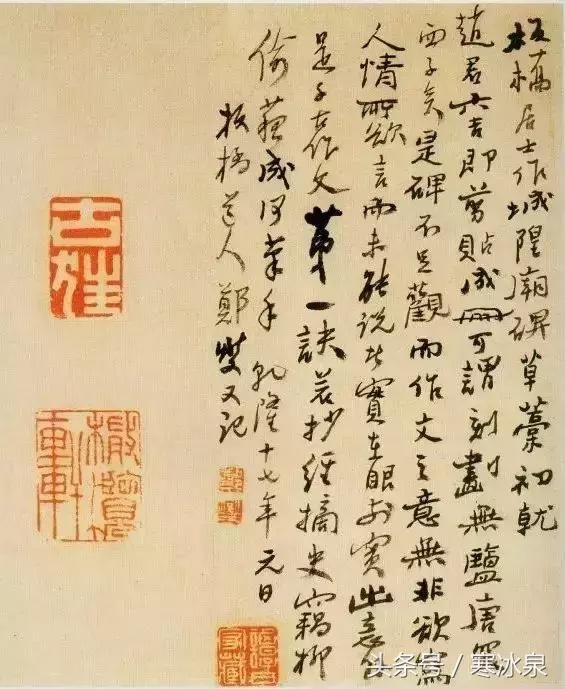 板橋居士作城隍廟碑草藁初就
趙君六吉即剪貼成冊可謂刻畫無鹽唐突
西子矣是碑不足觀而作文之意無非欲寫
人情所欲言而未能說實在眼前實出意
是千古作文第一訣若抄經摘史竊柳
偷蘇成何筆手 乾隆十七年元日
板橋道人鄭燮又記
头条号 / 寒冰泉